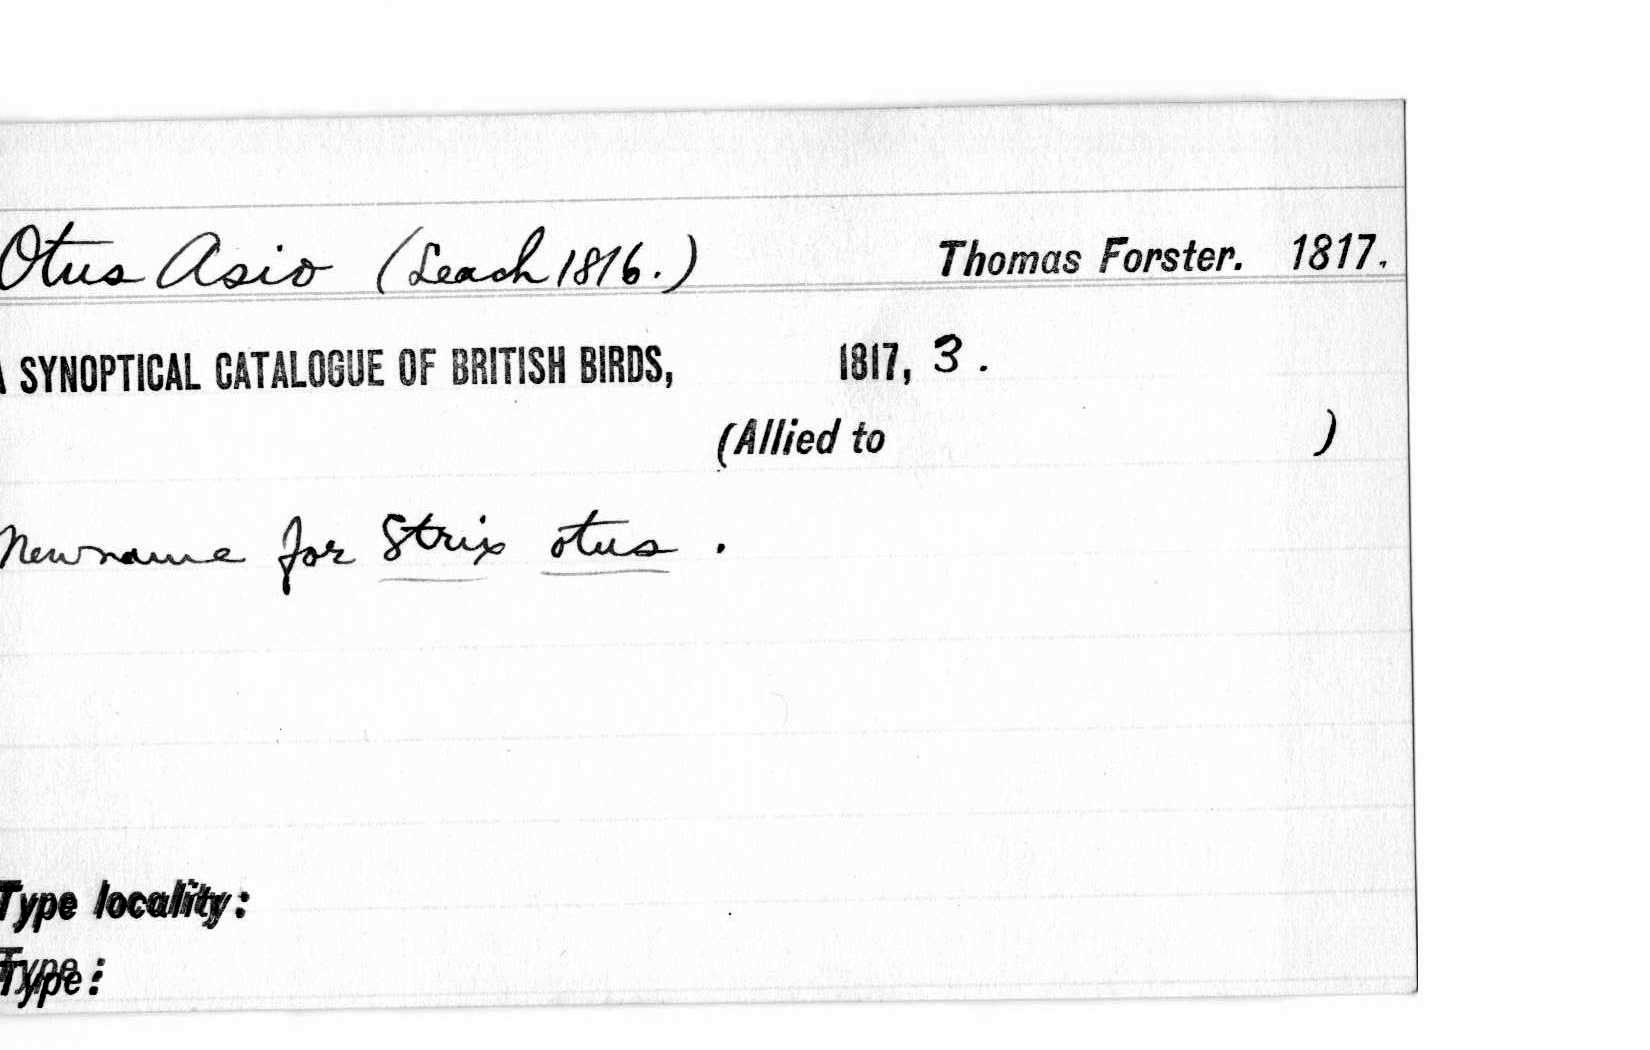 Otus Asio (Leach 1816.) Thomas Forster. 1817.
A SYNOPTICAL CATALOGUE OF BRITISH BIRDS, 1817, 3.
(Allied to )
New name for Strix otus.
Type locality:
Type: